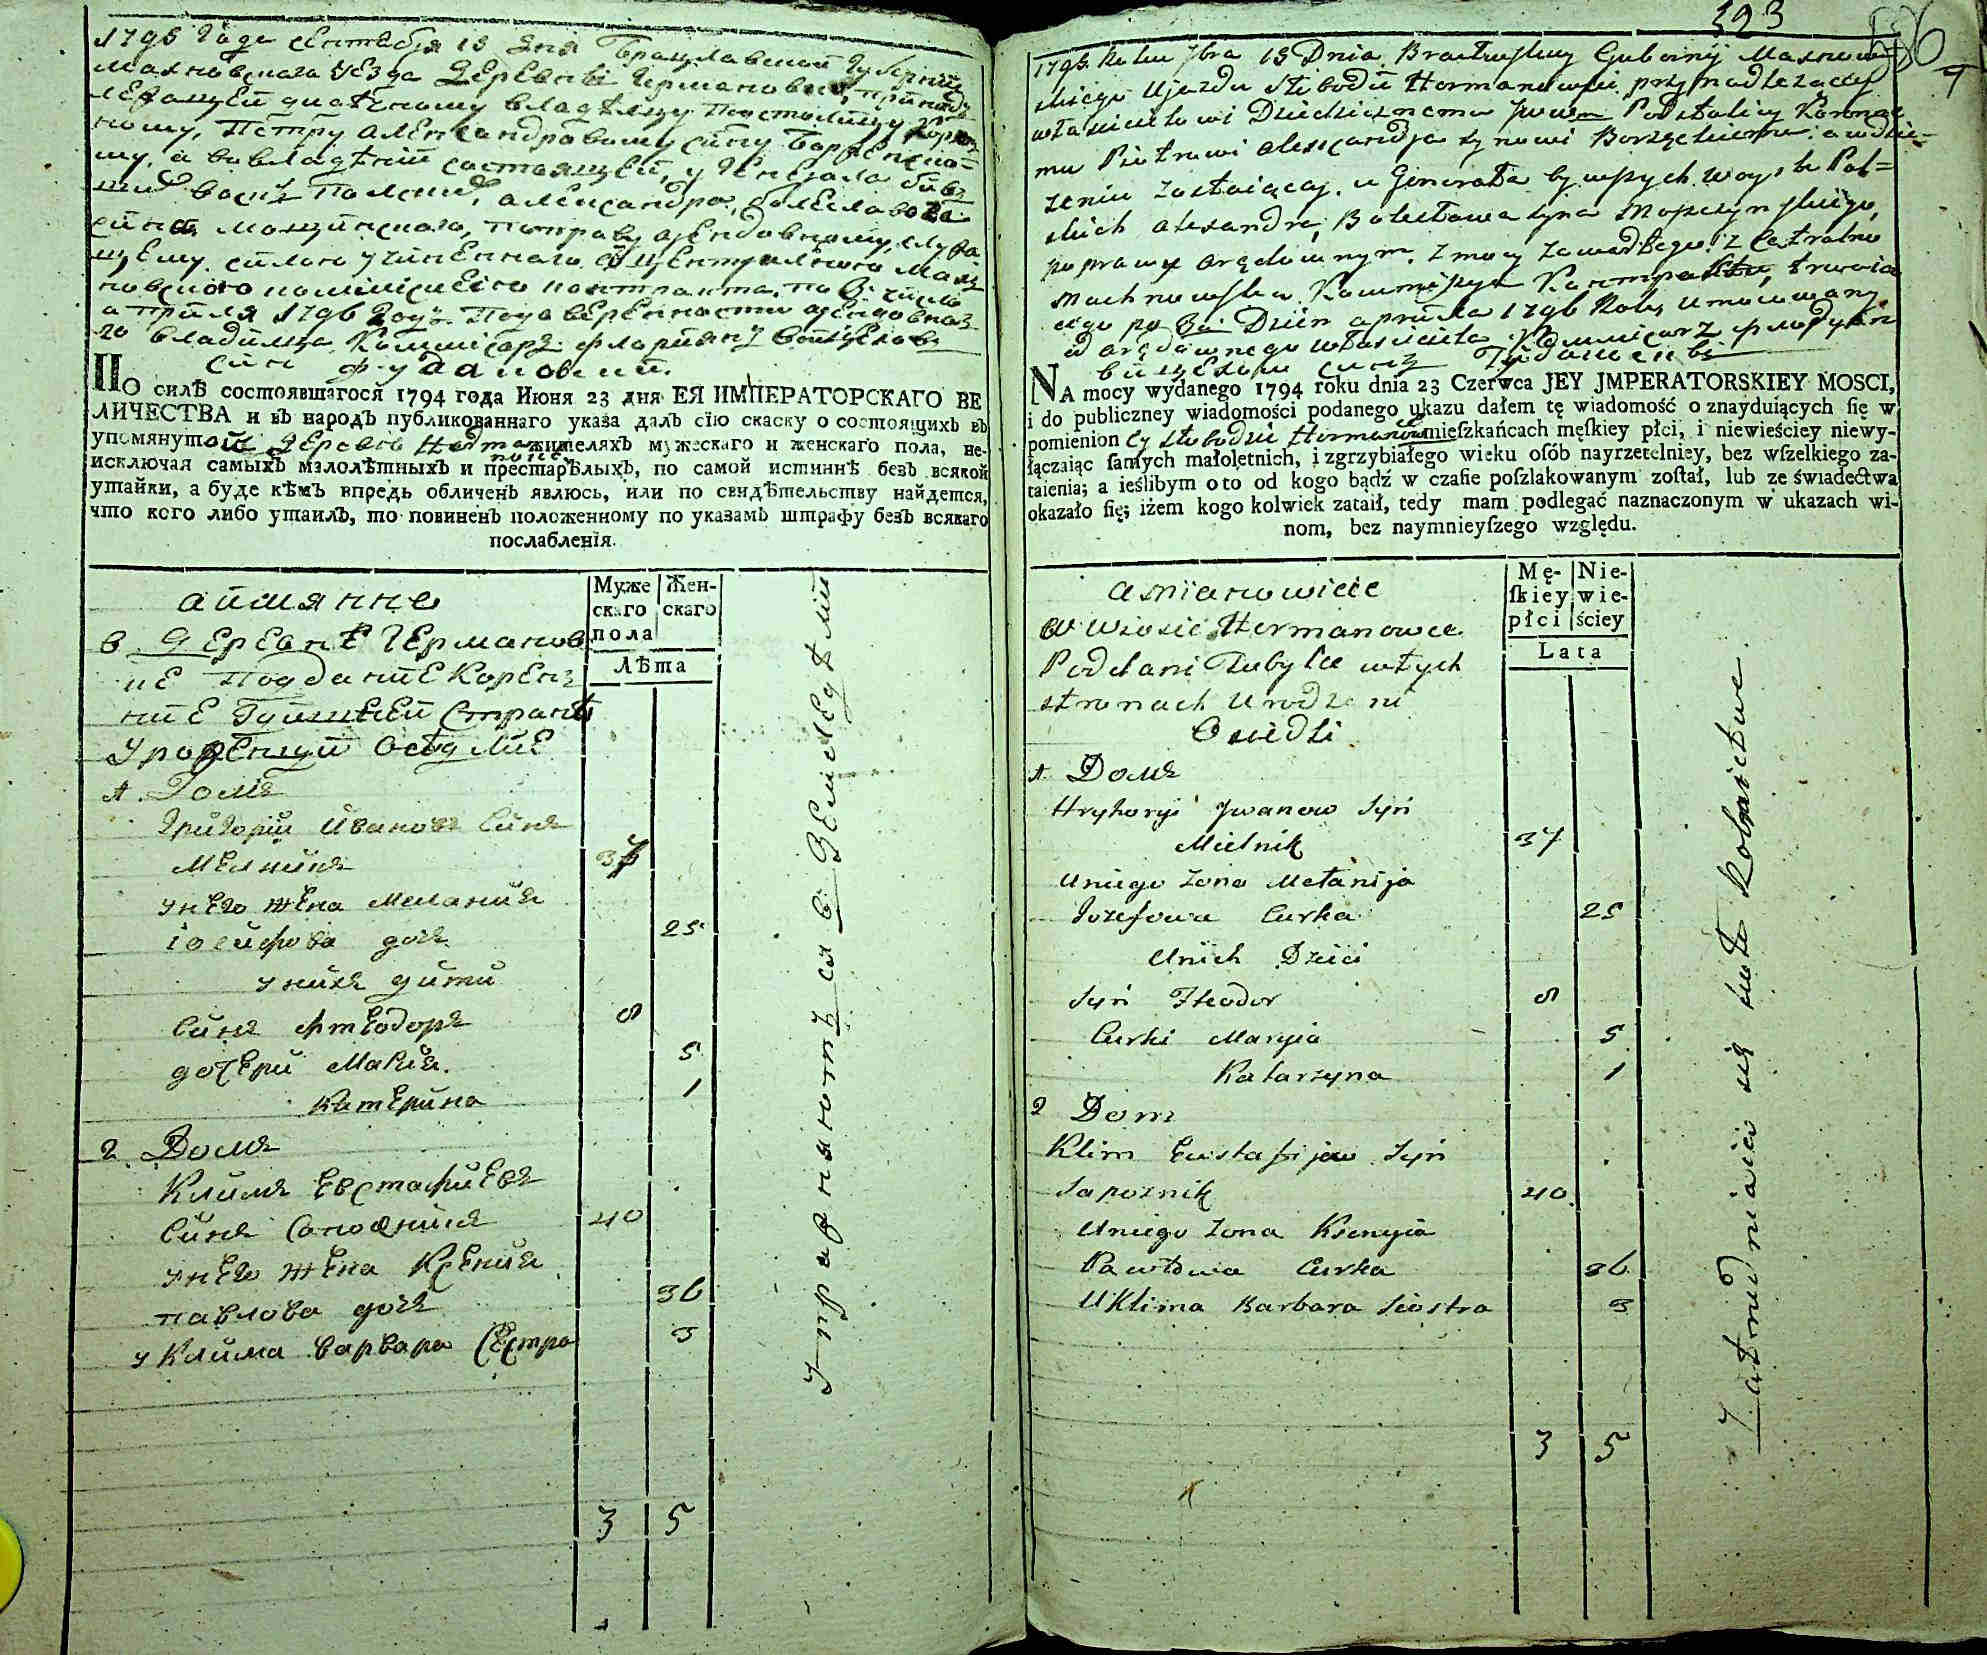 1795 Года Сентября 13 дня Брацлавской Губернии
Махновскаго Уезда Деревни Германовки,
лежащей дедичному владельцу Подстолицу
ному, Петру Александровому сину
му, а вовладении состоящей, у Генерала бив
Войск Полских, Александра, Болеслава
сина Мощинскаго, поправу арендовному,
щему силою учиненнаго Централною Мах
новскою контракта, по
апреля 1796 Году. Поуверенности арендовна
го владелца, Коммисарз Флориянз Войцехов
син
По силѣ состоявшагося 1794 года Июня 23 дня ЕЯ ИМПЕРАТОРСКАГО ВЕ
ЛИЧЕСТВА и въ народъ публикованнаго указа далъ сїю скаску о состоящихъ въ
упомянутой Деревне жителяхъ мужескаго и женскаго пола, не-
исключая самыхъ малолѣтныхъ и престарѣлыхъ, по самой истиннѣ безъ всякой
утайки, а буде кѣмъ впредь обличенъ явлюсь, или по свидѣтельству найдется,
что кого либо утаилъ, то повиненъ положенному по указамъ штрафу безъ всякаго
послабленія.
Муже
скаго
пола
Жен-
скаго
Лѣта
аимянно
в Деревнѣ Германов
ке Подданніе Корен
ніе
Уроженци Оседліе
1 Домъ
Григорій Ивановъ Синъ
Мелникъ 37
унего жена Мелания
Іосифова дочь 25
унихъ дити
Синъ Фтеодоръ 8
дочери Мария 5
Катерина 1
2 Домъ
Климъ Евстафиевъ
Синъ Сапожникъ 40
унего жена Ксения
павлова дочь 36
у Клима варвара Сестра 3
3 5
Упражняютъся в Земледелии
393
1795 Roku 7bra 13 Dnia Bracławskiey Gubernij Machnow
skiego Ujazdu Słobodu Hermanowki przynadłeżącey
własicielowi Dziedzicznemu Jwem Podstolicy Koronne
mu Piotrowi Alexandra synowi
zeniu zostaiącey u Generała bywszych Woysk Pol=
skich Alexandra, Bolesława syna Moszczynskiego,
poprawu arędownym, z mocy zawartego z Cetralno
Machnowska Kommissyi Kontraktu, trwaią
cego po Dzień aprila 1796 Roku umocowany
od arędownego własiciela Kommisarz Floryan
NA mocy wydanego 1794 roku dnia 23 Czerwca JEY JMPERATORSKIEY MOSCI,
i do publiczney wiadomości podanego ukazu dałem tę wiadomość o znayduiących ſię w
pomienioncy słobodzie Hermanowki mieſzkańcach męſkiey płci, i niewieściey niewy-
łączaiąc ſamych małoletnich, i zgrzybiałego wieku oſób nayrzetelniey, bez wſzelkiego za-
taienia; a ieślibym oto od kogo bądź w czaſie poſzlakowanym zoſtał, lub ze świadectwa
okazało ſię; iżem kogo kolwiek zataił, tedy mam podlegać naznaczonym w ukazach wi-
nom, bez naymnieyſzego względu.
Mę-
ſkiey
płci
Nie-
wie-
ściey
Lata
a mianowicie
w wiosie Hermanowce
Poddani Tubylce wtych
stronach Urodzeni
Osiedli
1 Домъ
Hryhoryi Jwanow Syń
Mielnik 37
Uniego Zona Mełanija
Jozefowa Curka 25
Unich Dzieci
Syń Fteodor 8
Curki Maryia 5
Katarzyna 1
2 Dom
Klim Eustafijew Syń
Sapoznik 40
Uniego Zona Ksenyia
Pawłowa Curka 36
U Klima Barbara Siostra 3
3 5
Zatrudniaią się koło Rolnictwa